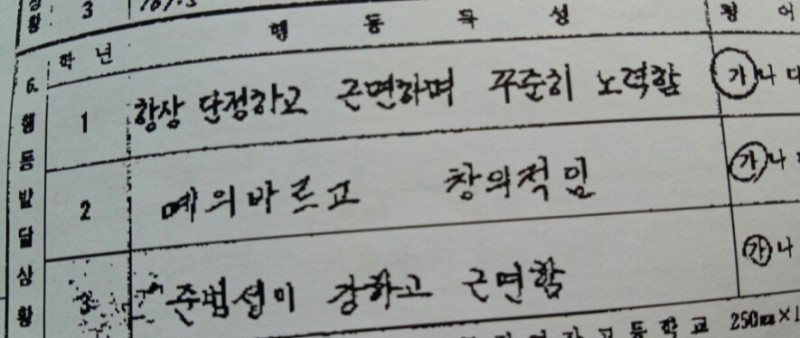 황 3
행 동 특 성
학 년
6. 행 동 발 달 상 황
1 항상 단정하고 근면하며 꾸준히 노력함 가 나 다
2 예의바르고 창의적임 가 나
3 준법성이 강하고 근면함 가 나
고 등 학 교 250㎜×1